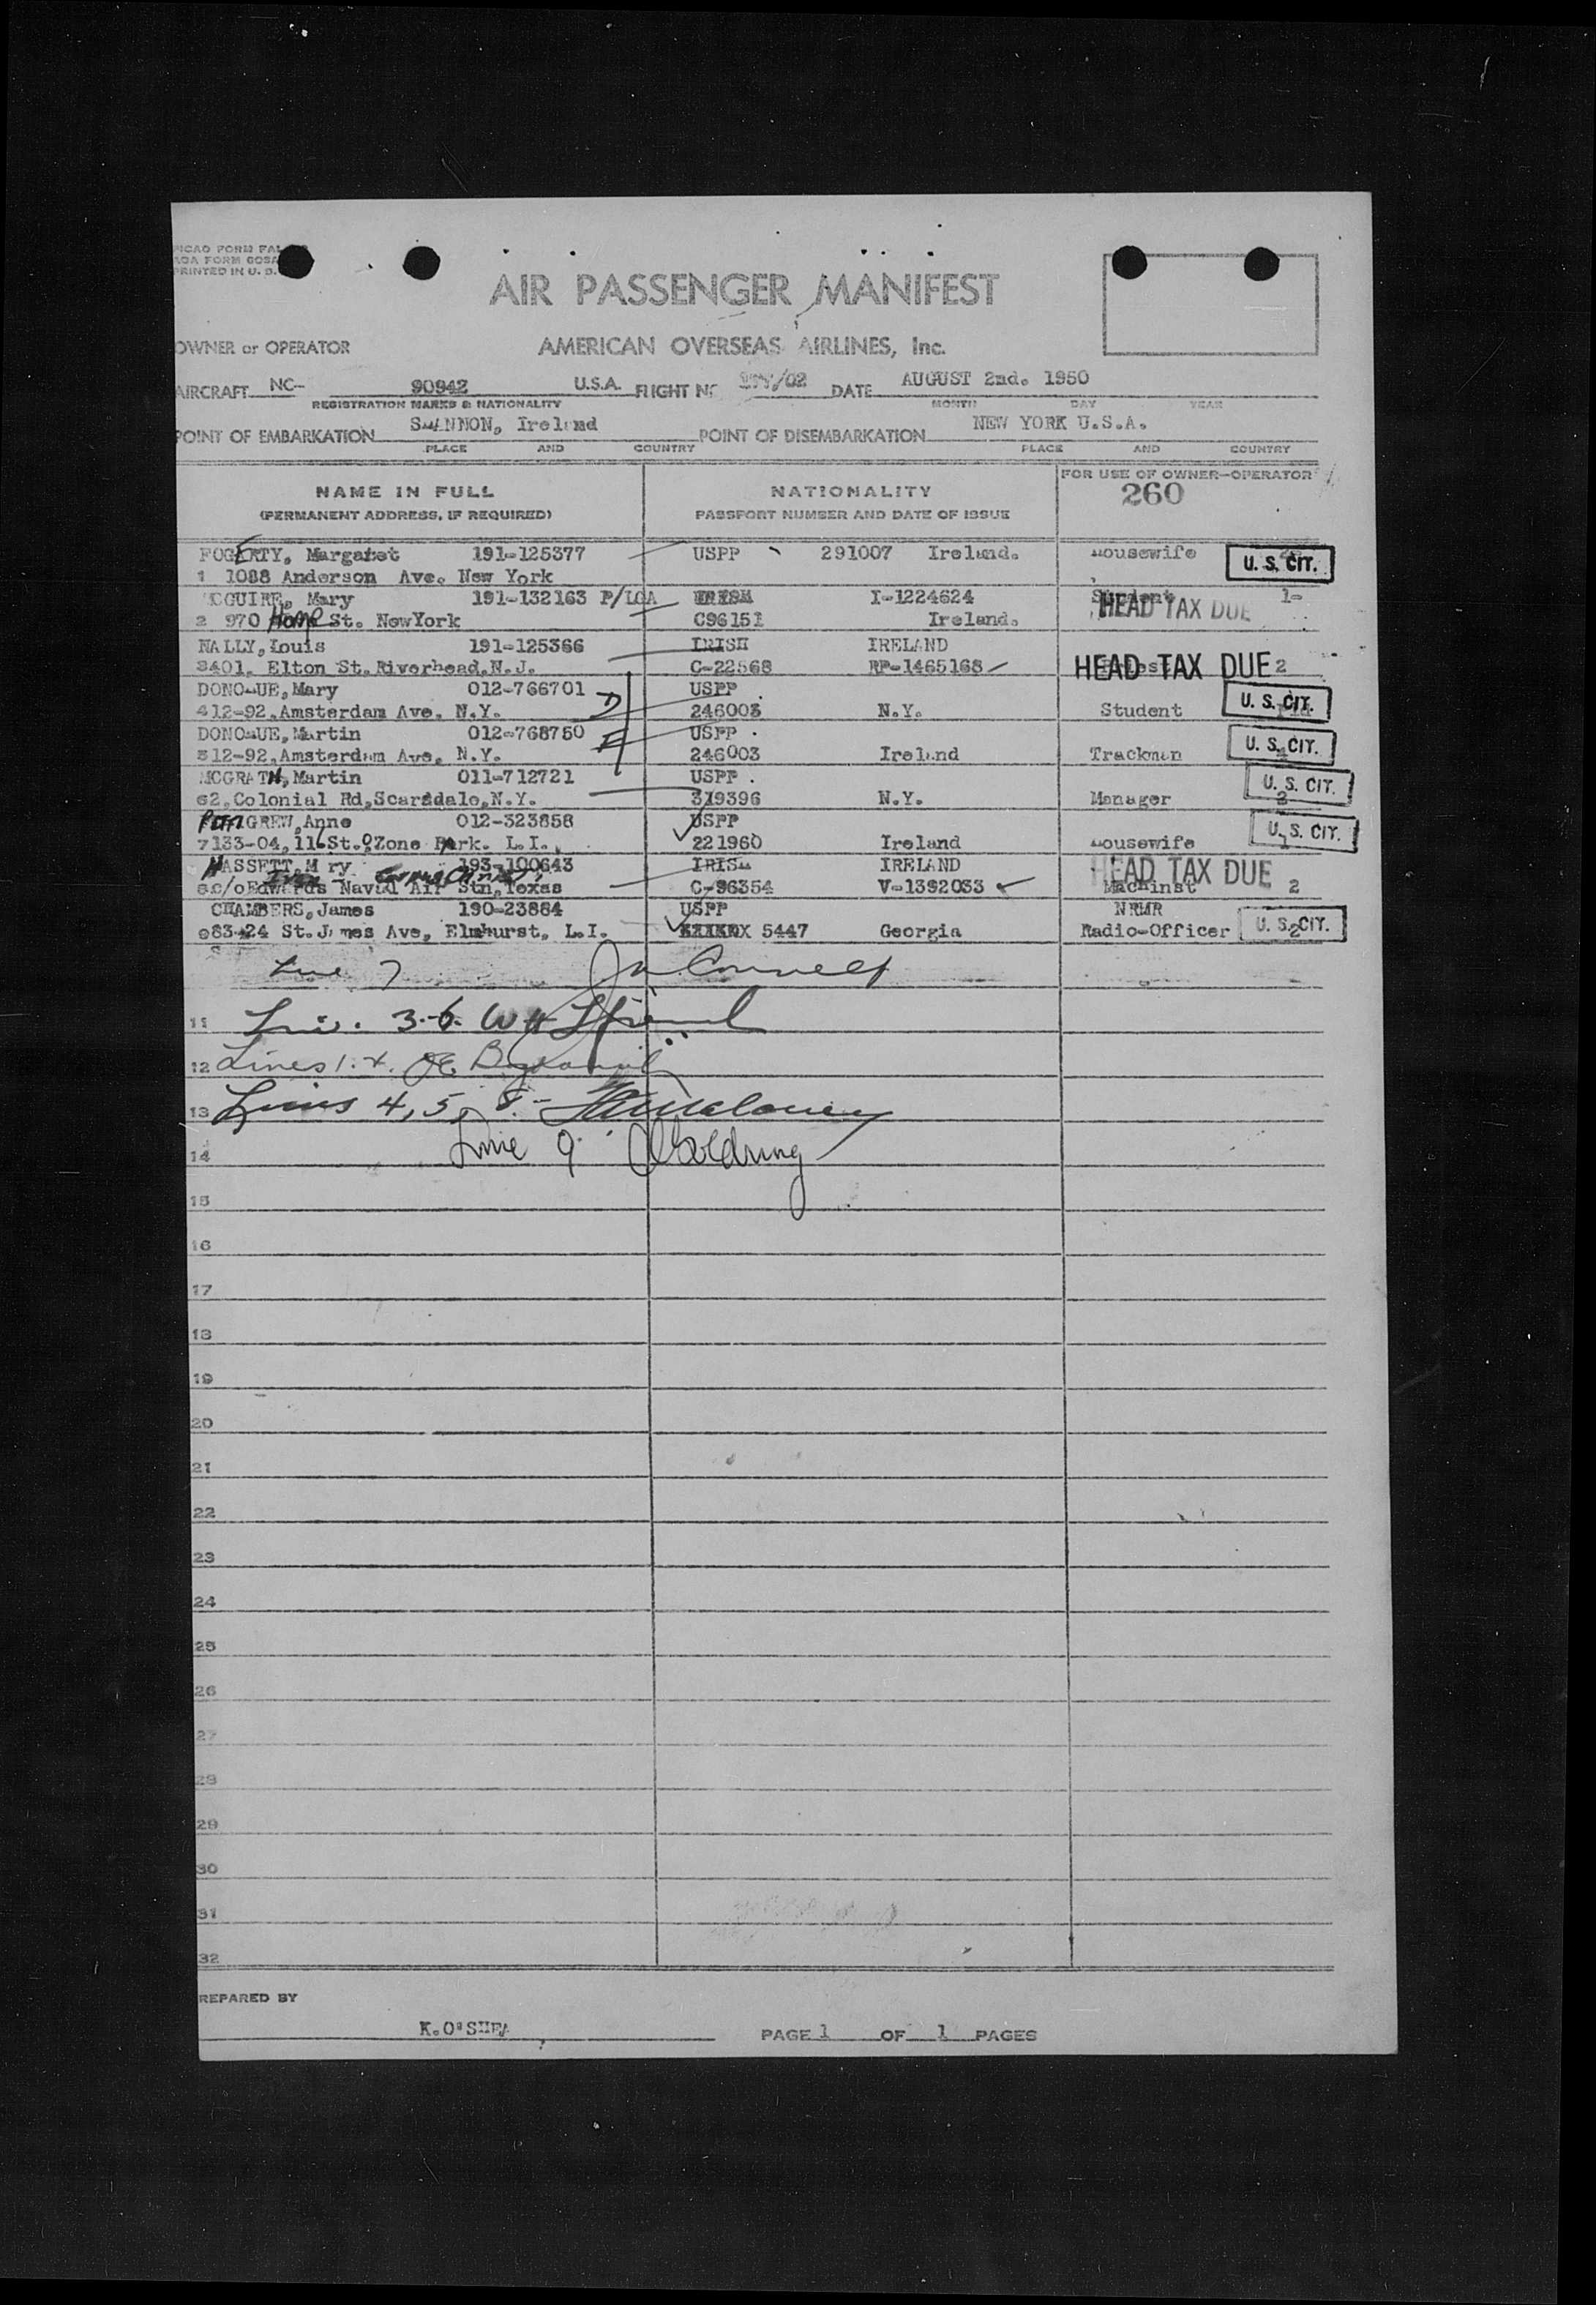 AIR PASSENGER MANIFEST
OWNER or OPERATOR AMERICAN OVERSEAS AIRLINES, Inc.
AIRCRAFT NC- 90942 U.S.A. FLIGHT NO /02 DATE AUGUST 2nd. 1950
REGISTRATION MARKS & NATIONALITY MONTH DAY YEAR
POINT OF EMBARKATION SHANNON, Ireland POINT OF DISEMBARKATION NEW YORK U.S.A.
PLACE AND COUNTRY PLACE AND COUNTRY
NAME IN FULL NATIONALITY FOR USE OF OWNER-OPERATOR
(PERMANENT ADDRESS, IF REQUIRED) PASSPORT NUMBER AND DATE OF ISSUE 260
FOGERTY, Margaret 191-125377 USPP 291007 Ireland. Housewife U. S. CIT.
1 1088 Anderson Ave. New York
MCGUIRE, Mary 191-132163 P/LGA IRISH I-1224624 Student 1- HEAD TAX DUE
2 970 Home St. NewYork C96151 Ireland.
NALLY, Louis 191-125366 IRISH IRELAND
3401. Elton St. Riverhead. N.J. C-22568 RP-1465168 HEAD TAX DUE 2
DONOHUE, Mary 012-766701 USPP
412-92. Amsterdam Ave. N.Y. 246003 N.Y. Student U. S. CIT.
DONOHUE, Martin 012-768750 USPP .
512-92, Amsterdam Ave, N.Y. 246003 Ireland Trackman U. S. CIT.
MCGRATH, Martin 011-712721 USPP .
62, Colonial Rd, Scarsdale, N.Y. 319396 N.Y. Manager 2 U. S. CIT.
PETTIGREW, Anne 012-323858 USPP
7133-04, 116 St. OZone Park. L.I. 221960 Ireland Housewife U. S. CIT.
HASSETT, Mary 193-100643 IRISH IRELAND HEAD TAX DUE
8c/o Edwards Naval Air Stn, Texas C-96354 V-1392033 Machinst 2
CHAMBERS, James 190-23864 USPP NRMR
983-24 St. James Ave, Elmhurst, L.I. 5447 Georgia Radio-Officer 2 U. S. CIT.
Line 7
11
12 Lines 1.
13 Lines 4, 5, 8.-
14 Line 9
15
16
17
18
19
20
21
22
23
24
25
26
27
28
29
30
31
32
PREPARED BY
K.O'SHEA PAGE 1 OF 1 PAGES